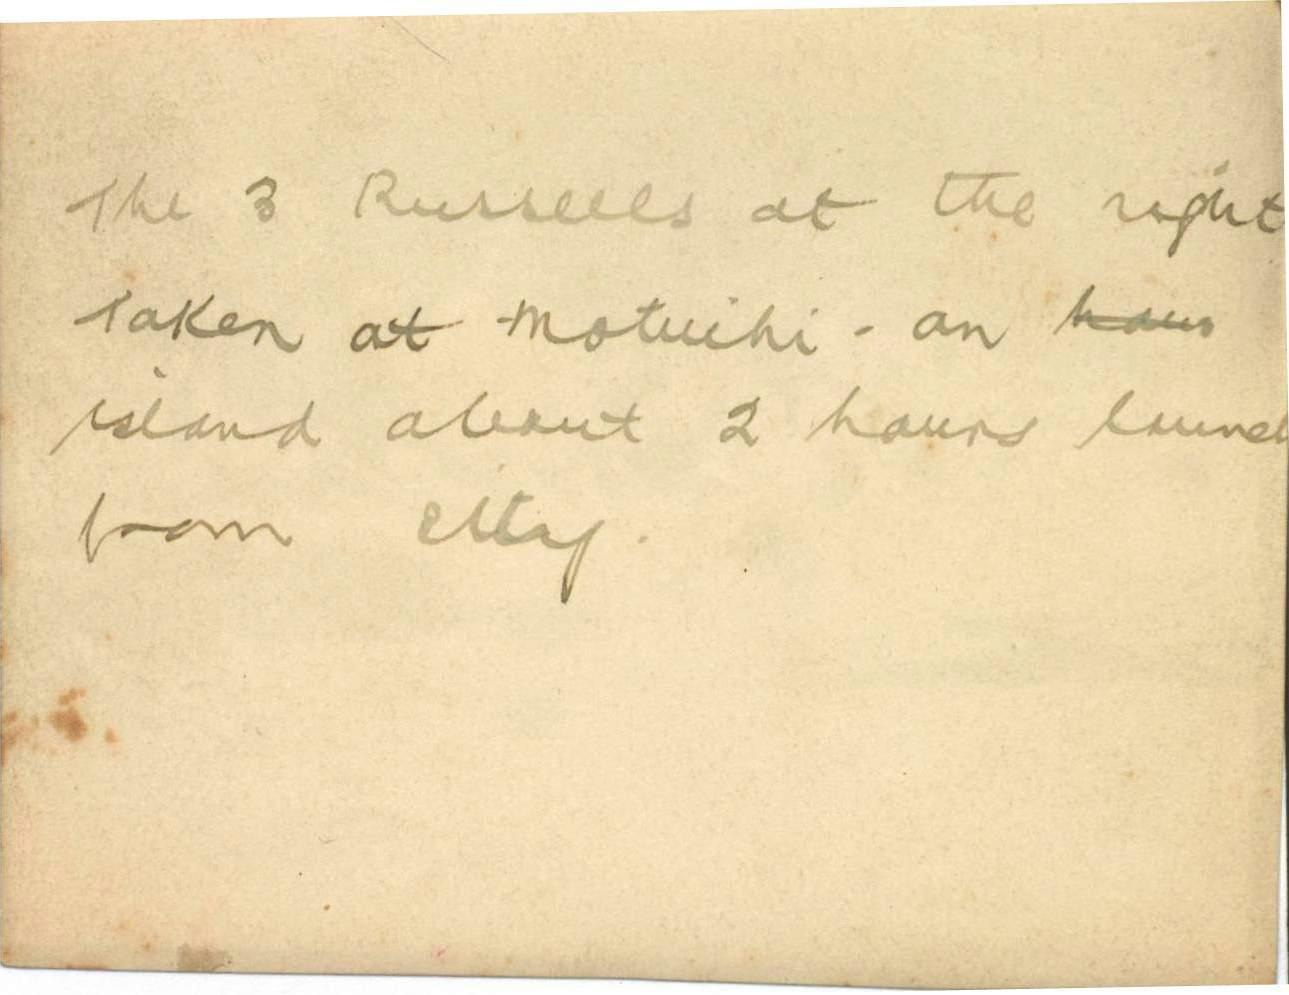 The 3 Russells at the right
taken at Motuihi - an hour
island about 2 hours launch
from city.